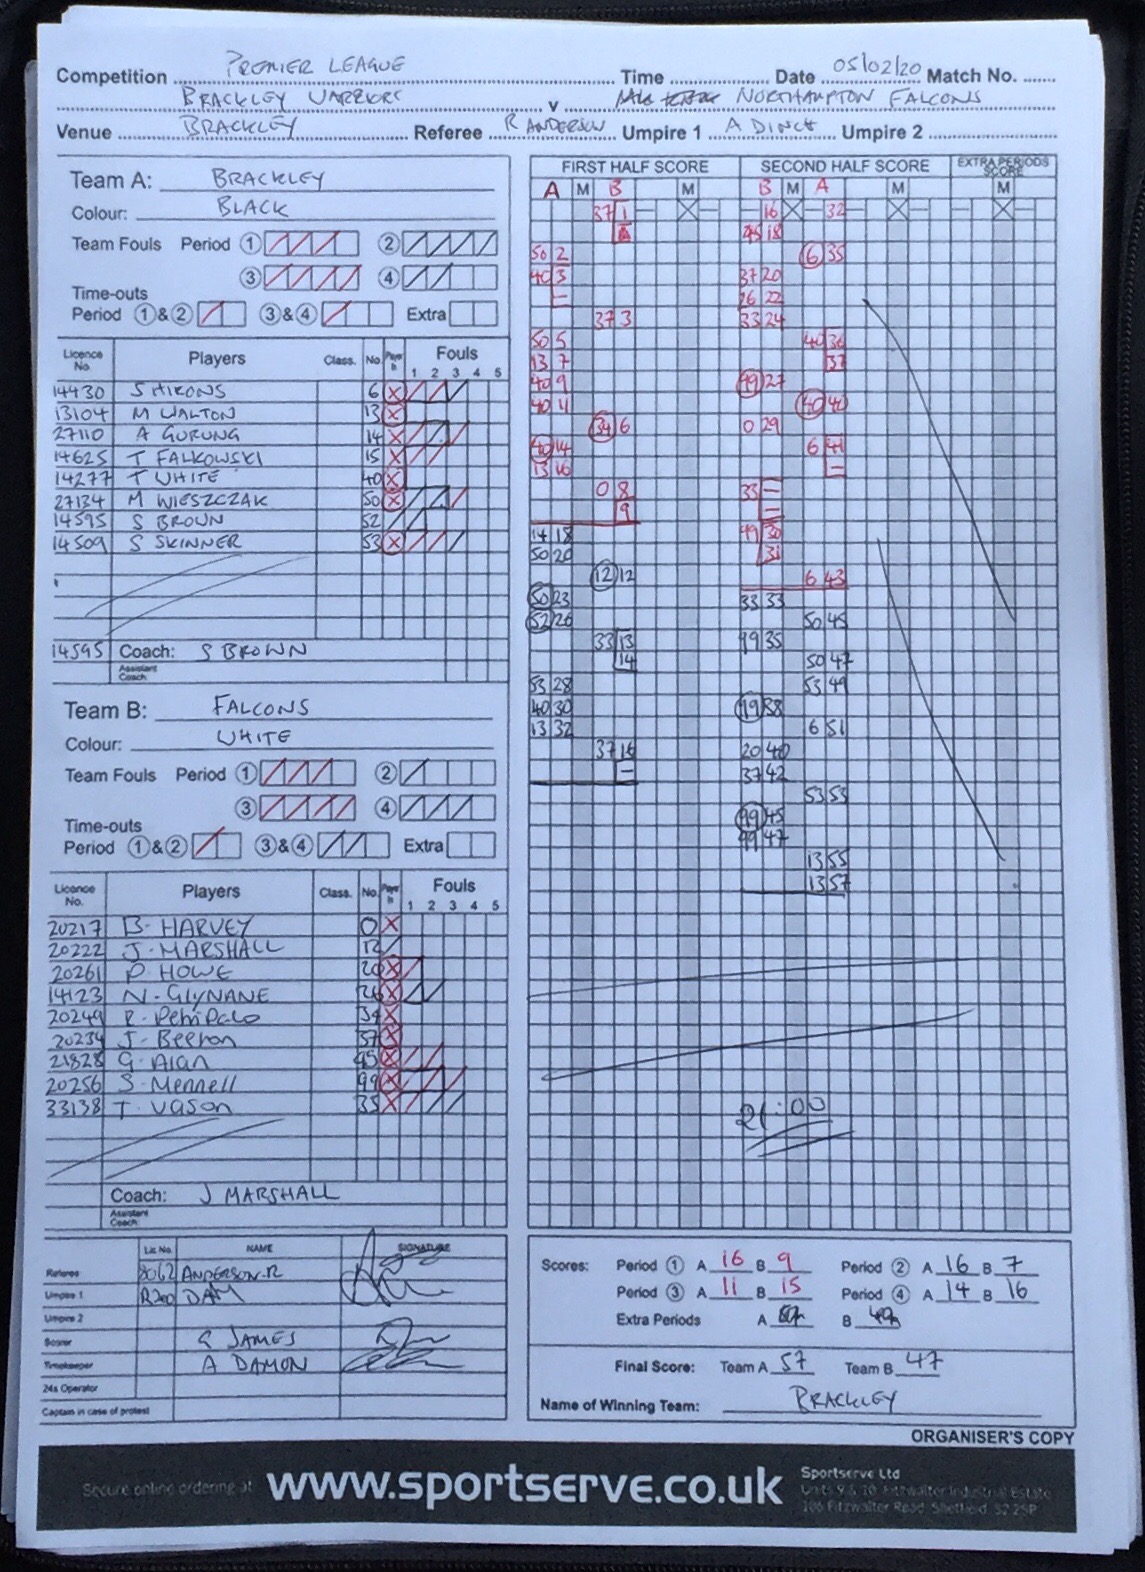 Competition PREMIER LEAGUE Time Date 05/02/20 Match No.
BRACKLEY WARRIORS v NORTHAMPTON FALCONS
Venue BRACKLEY Referee R ANDERSON Umpire 1 A DINCA Umpire 2
Team A: BRACKLEY
Colour: BLACK
Team Fouls Period 1 2
3 4
Time-outs
Period 1 & 2 3 & 4 Extra
Licence No. Players Class. No. Player In Fouls
1 2 3 4 5
14430 S HIRONS 6
13104 M WALTON 13
27110 A GURUNG 14
14625 T FALKOWSKI 15
14277 T WHITE 40
27134 M WIESZCZAK 50
14595 S BROWN 52
14509 S SKINNER 53
14595 Coach: S BROWN
Assistant Coach
Team B: FALCONS
Colour: WHITE
Team Fouls Period 1 2
3 4
Time-outs
Period 1 & 2 3 & 4 Extra
Licence No. Players Class. No. Player In Fouls
1 2 3 4 5
20217 B. HARVEY 0
20222 J. MARSHALL 12
20261 P. HOWE 20
14123 N. GLYNANE 26
20249 34
20234 J. Beeton 37
21828 G. Alan 45
20256 S. Mennell 99
33138 T. Vason 33
Coach: J MARSHALL
Assistant Coach
Lic No. NAME SIGNATURE
Referee ANDERSON.R
Umpire 1
Umpire 2
Scorer G JAMES
Timekeeper A DAMON
24s Operator
Captain in case of protest
FIRST HALF SCORE SECOND HALF SCORE EXTRA PERIODS SCORE
A M B M B M A M M
37 1 16 32
45 18
50 2 6 35
40 3 37 20
26 22
37 3 33 24
50 5 40 36
13 7 37
40 9 99 27
40 11 40 40
34 6 0 29
40 14 6 41
13 16
0 8 33
9
14 18 99 30
50 20 31
12 12 6 43
50 23 33 33
52 26 50 45
33 13 99 35
14 50 47
53 28 53 49
40 30 99 38
13 32 6 51
37 16 20 40
37 42
53 53
99 45
99 47
13 55
13 57
21:00
Scores: Period 1 A 16 B 9 Period 2 A 16 B 7
Period 3 A 11 B 15 Period 4 A 14 B 16
Extra Periods A B
Final Score: Team A 57 Team B 47
Name of Winning Team: BRACKLEY
ORGANISER'S COPY
Secure online ordering at www.sportserve.co.uk
Sportserve Ltd
Units 9 & 10 Fitzwalter Industrial Estate
106 Fitzwalter Road, Sheffield, S2 2SP